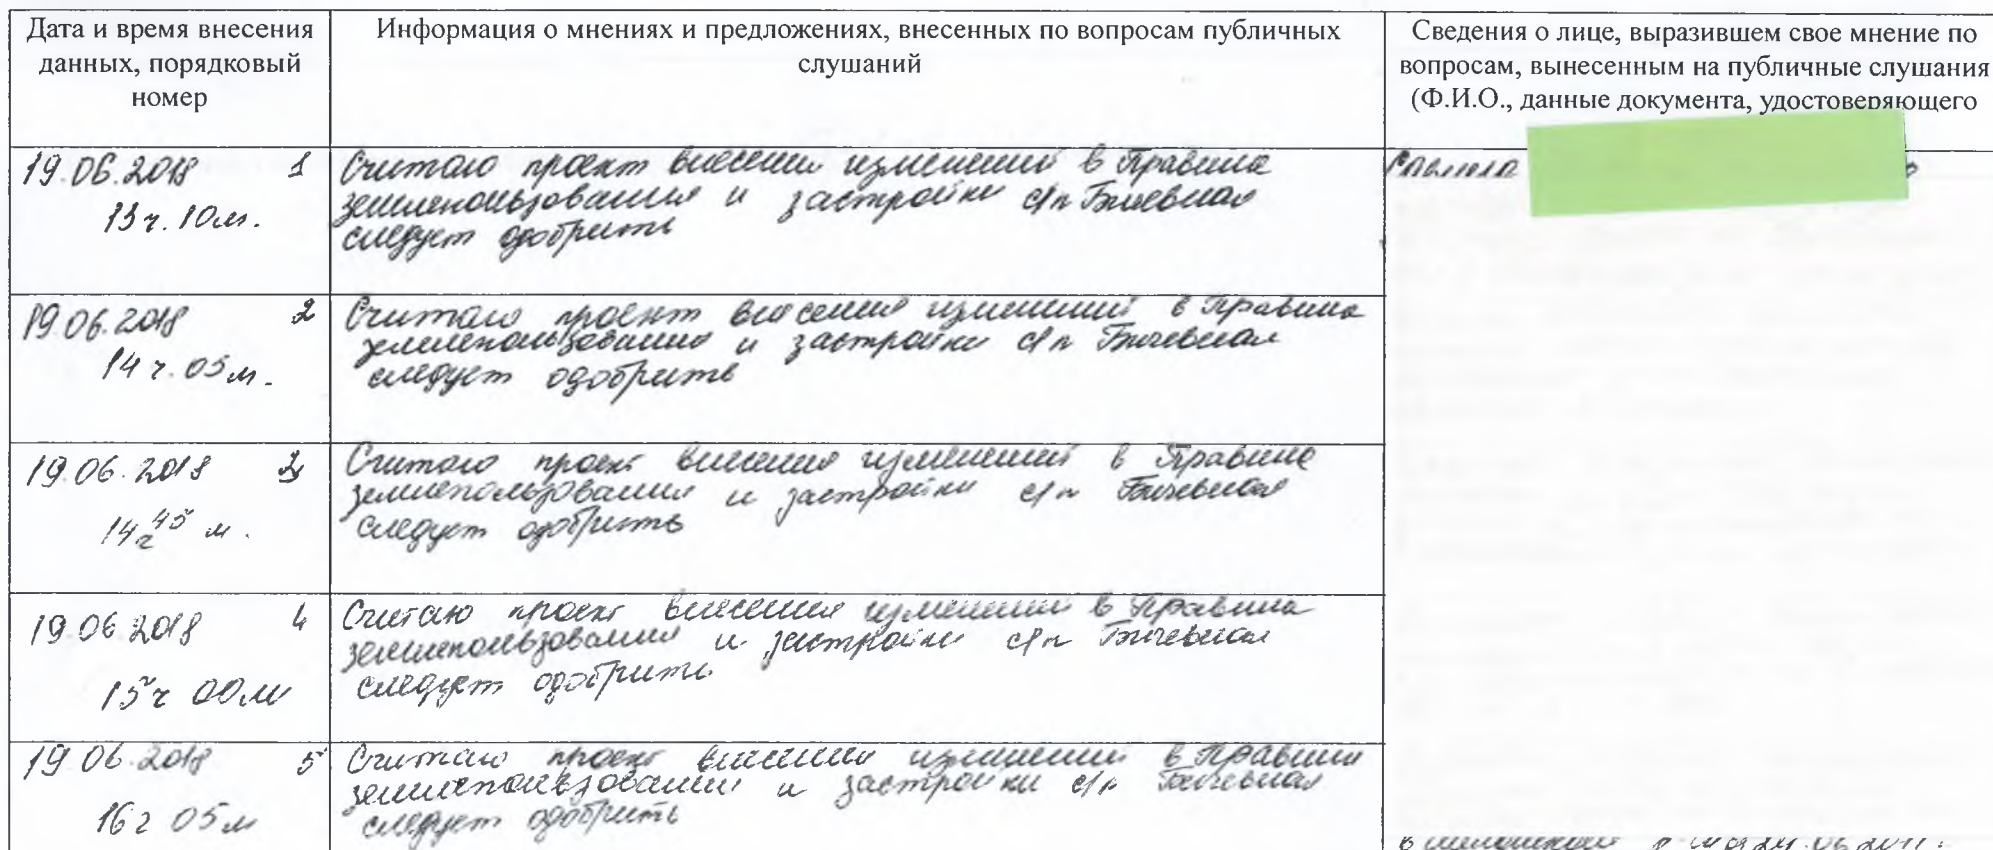 Дата и время внесения
данных, порядковый
номер
Информация о мнениях и предложениях, внесенных по вопросам публичных
слушаний
Сведения о лице, выразившем свое мнение по
вопросам, вынесенным на публичные слушания
(Ф.И.О., данные документа, удостоверяющего
19.06.2018 1
13 ч. 10 м.
Считаю проект внесения изменений в Правила
землепользования и застройки с/п Бичевная
следует одобрить
19.06.2018 2
14 ч. 05 м.
Считаю проект внесения изменений в Правила
землепользования и застройки с/п Бичевная
следует одобрить
19.06.2018 3
14 ч 45 м.
Считаю проект внесения изменений в Правила
землепользования и застройки с/п Бичевная
следует одобрить
19.06.2018 4
15 ч 00 м
Считаю проект внесения изменений в Правила
землепользования и застройки с/п Бичевная
следует одобрить
19.06.2018 5
16 ч 05 м
Считаю проект внесения изменений в Правила
землепользования и застройки с/п Бичевная
следует одобрить